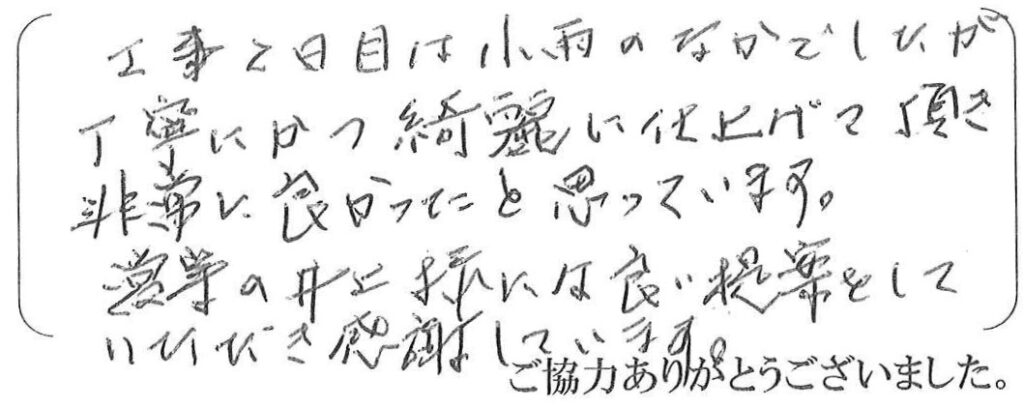 工事2日目は小雨のなかでしたが
丁寧にかつ綺麗に仕上げて頂き
非常に良かったと思っています。
営業の井上様には良い提案をして
いただき感謝しています。
ご協力ありがとうございました。